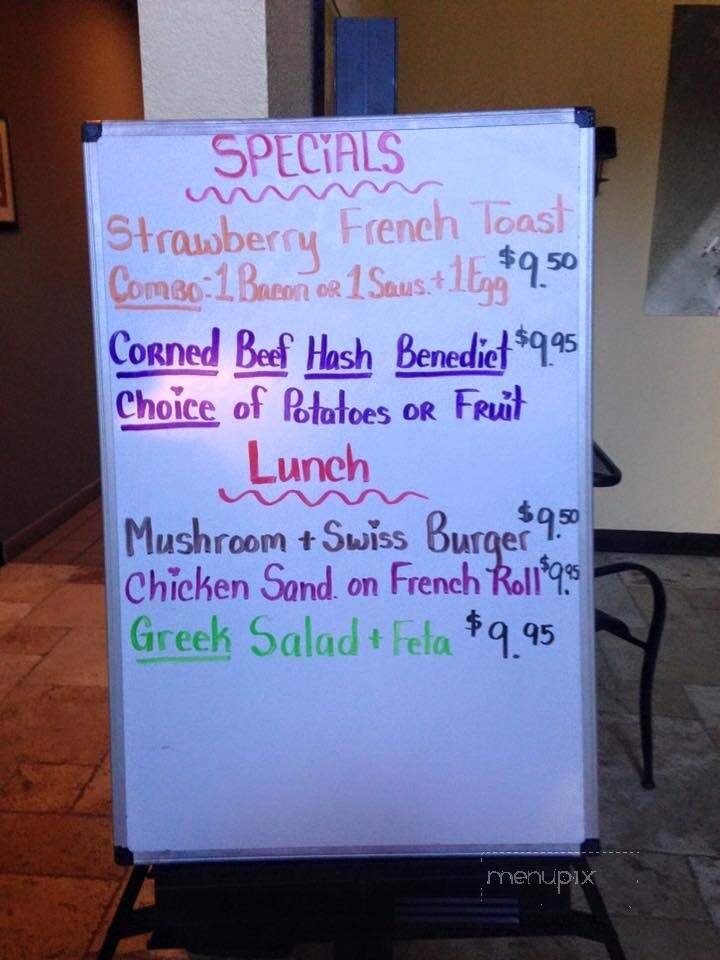 SPECiALS
Strawberry French Toast
Combo-1 Bacon OR 1 Saus.+ 1 Egg $9.50
Corned Beef Hash Benedict $9.95
Choice of Potatoes OR Fruit
Lunch
Mushroom + Swiss Burger $9.50
Chicken Sand. on French Roll $9.95
Greek Salad + Feta $9.95
menupix